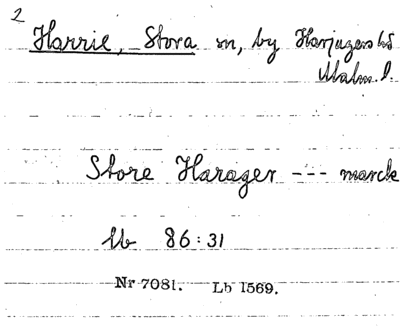 2
Harrie, Stora sn, by Harjagers hd
Malm. l.
Store Harager --- marck
Lb 86:31
Nr 7081. Lb 1569.